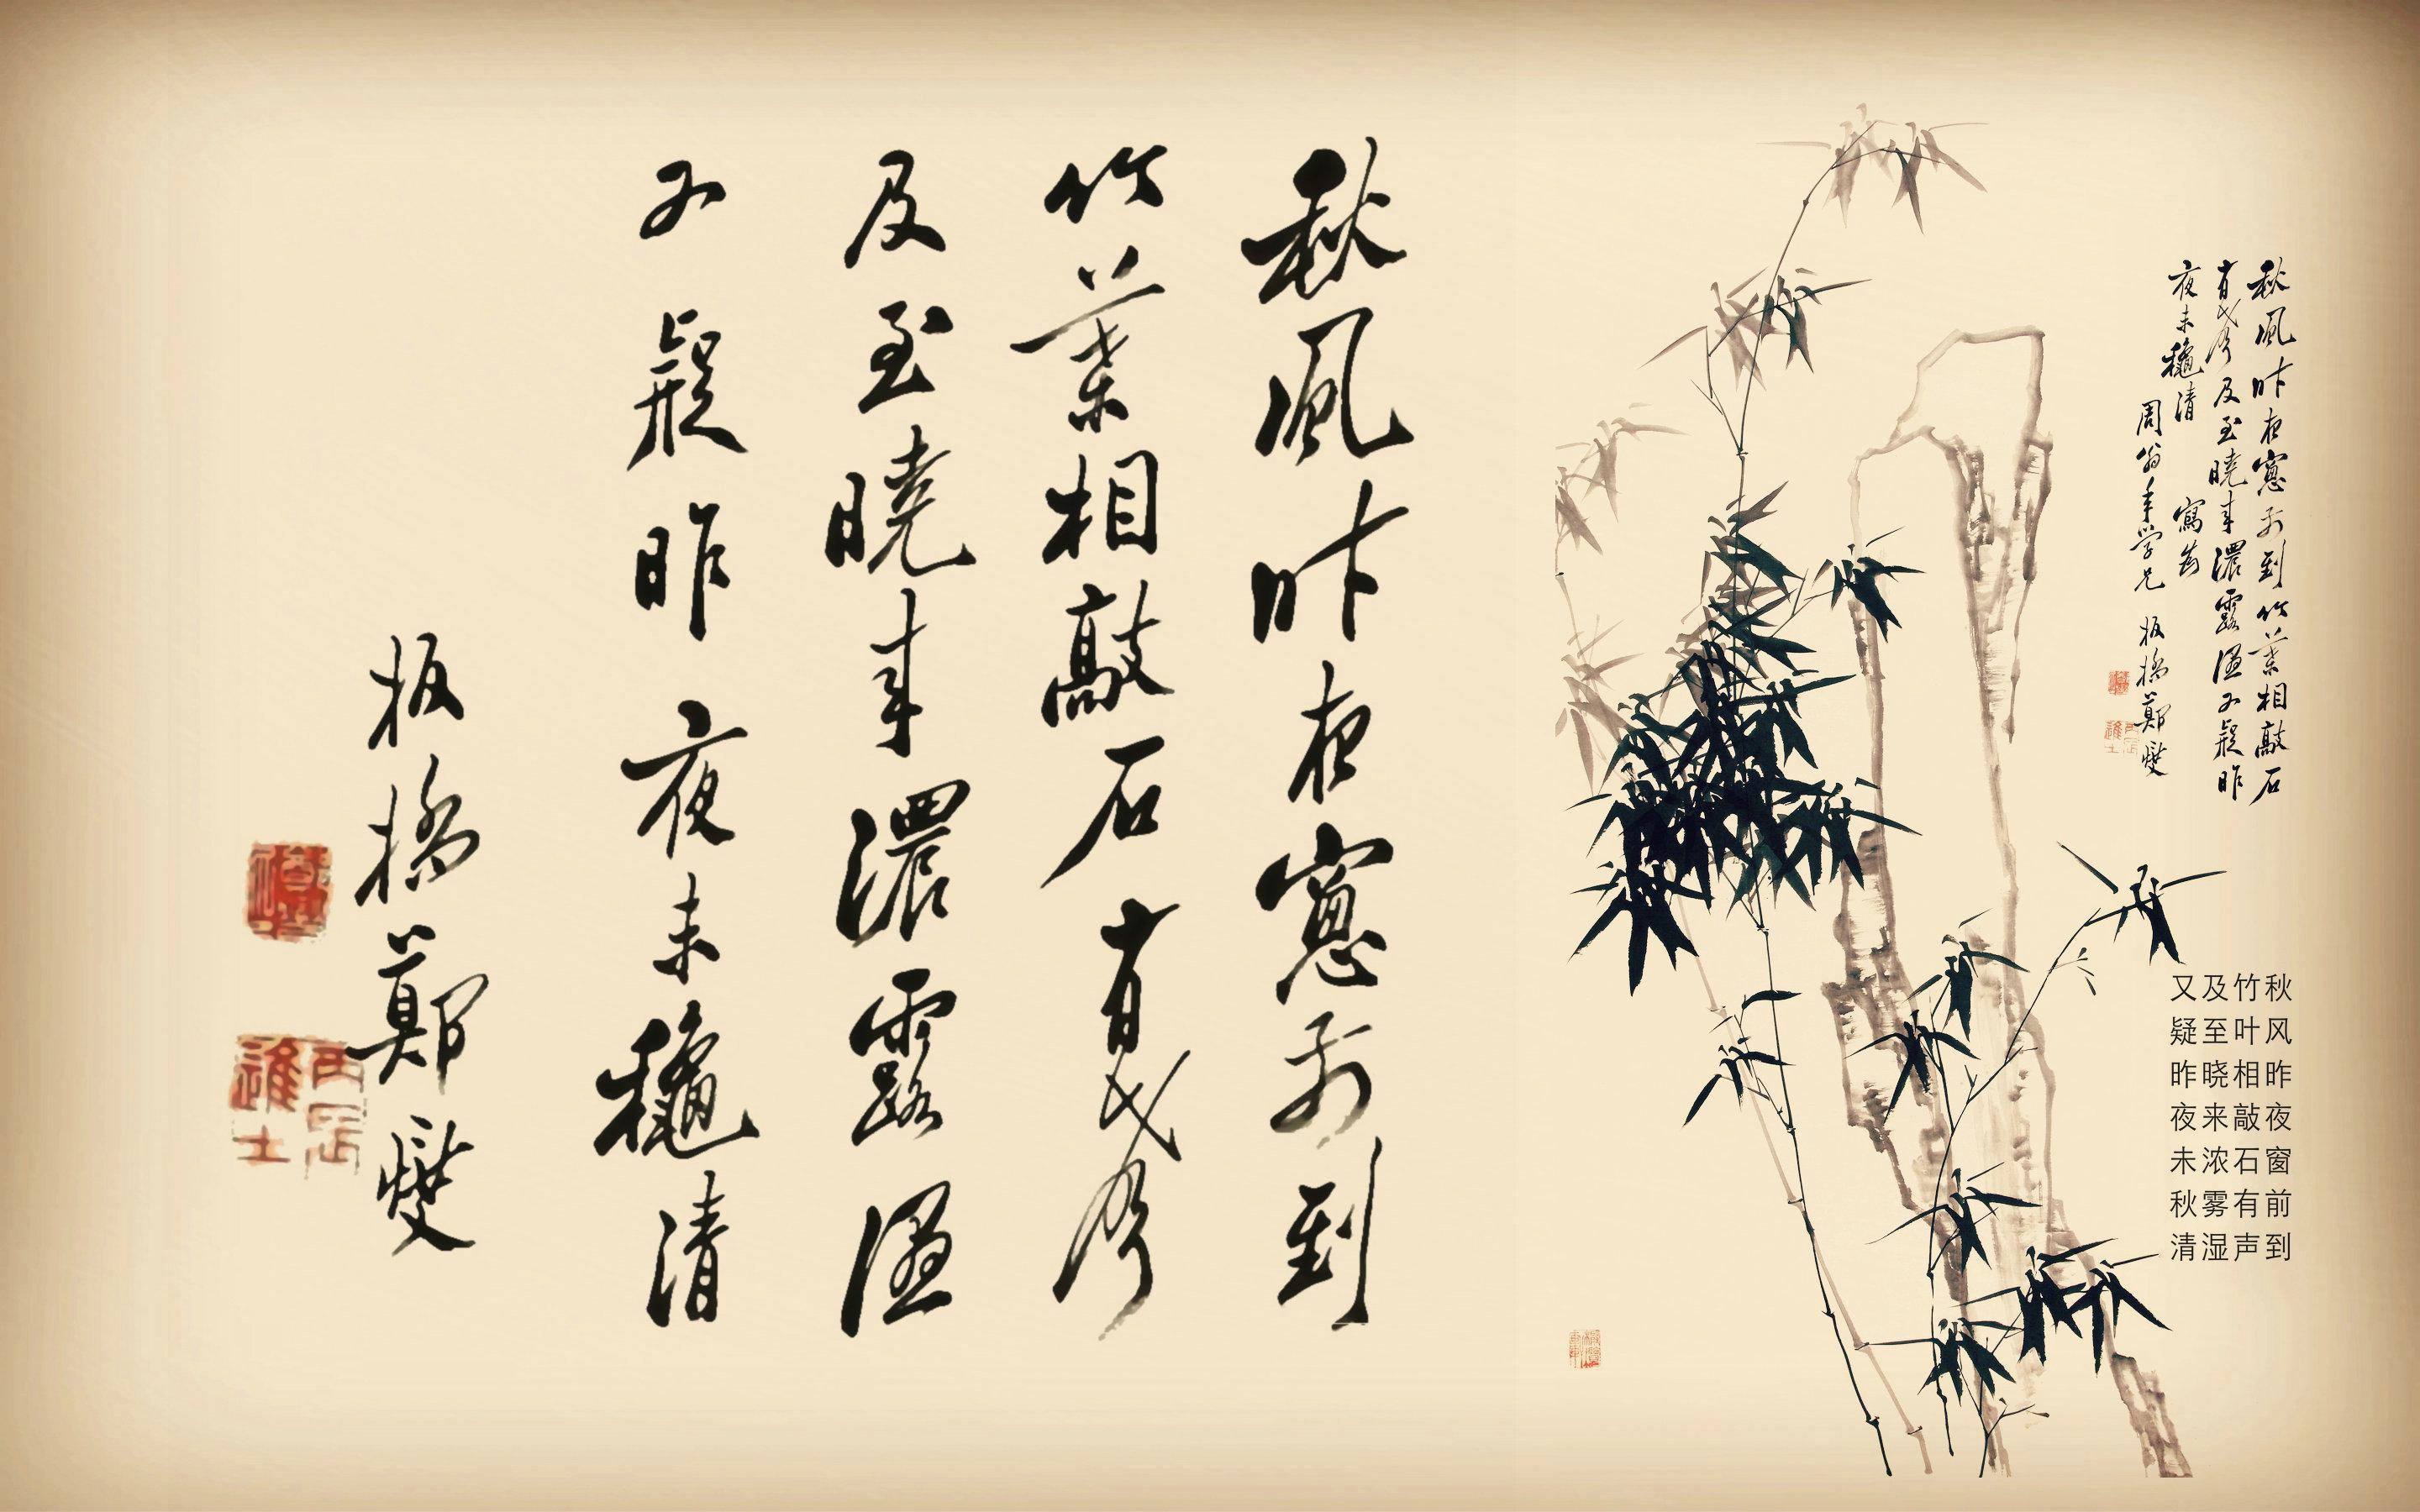 秋風昨夜窻前到竹葉相敲石
有聲及至曉來濃露濕又疑昨
夜未龝清 寫為
周翁年学兄 板橋鄭燮
秋风昨夜窗前到
竹叶相敲石有声
及至晓来浓雾湿
又疑昨夜未秋清
秋風昨夜窻前到
竹葉相敲石有聲
及至曉來濃露濕
又疑昨夜未龝清
板橋鄭燮
丙辰進士